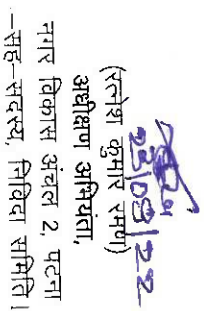 23/09/22
(रत्नेश कुमार रमण)
अधीक्षण अभियंता,
नगर विकास अंचल 2, पटना
–सह–सदस्य, निविदा समिति।